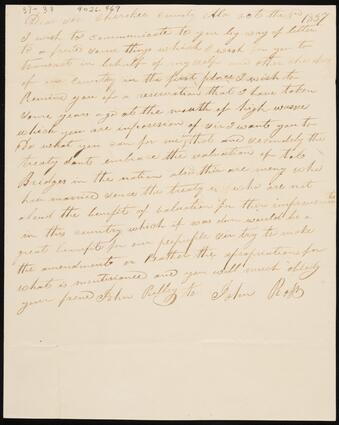 37-38 4026.469
Dear Sir Cherokee County Ala Oct the 3rd 1837
I wish to communicate to you by way of letter
to a few some things which I wish you to
transact in behalf of myself and other
of our country in the first place I wish to
Remind you of a reservation that I have taken
some years ago at the mouth of high
which you are in possession of sir I want you to
Do what you can for me that and secondly the
treaty dont embrace the valuation of
Bridges in the nation also there are meny who
has married sence the treaty of who are not
alowd the benefit of valuation for their improvements
in this country which if was done would be a
great benefit for our people sir try to make
the amendments or Rather the apropriations for
what is mentioned and you will much oblidg
your frend John Ridley to John Ross